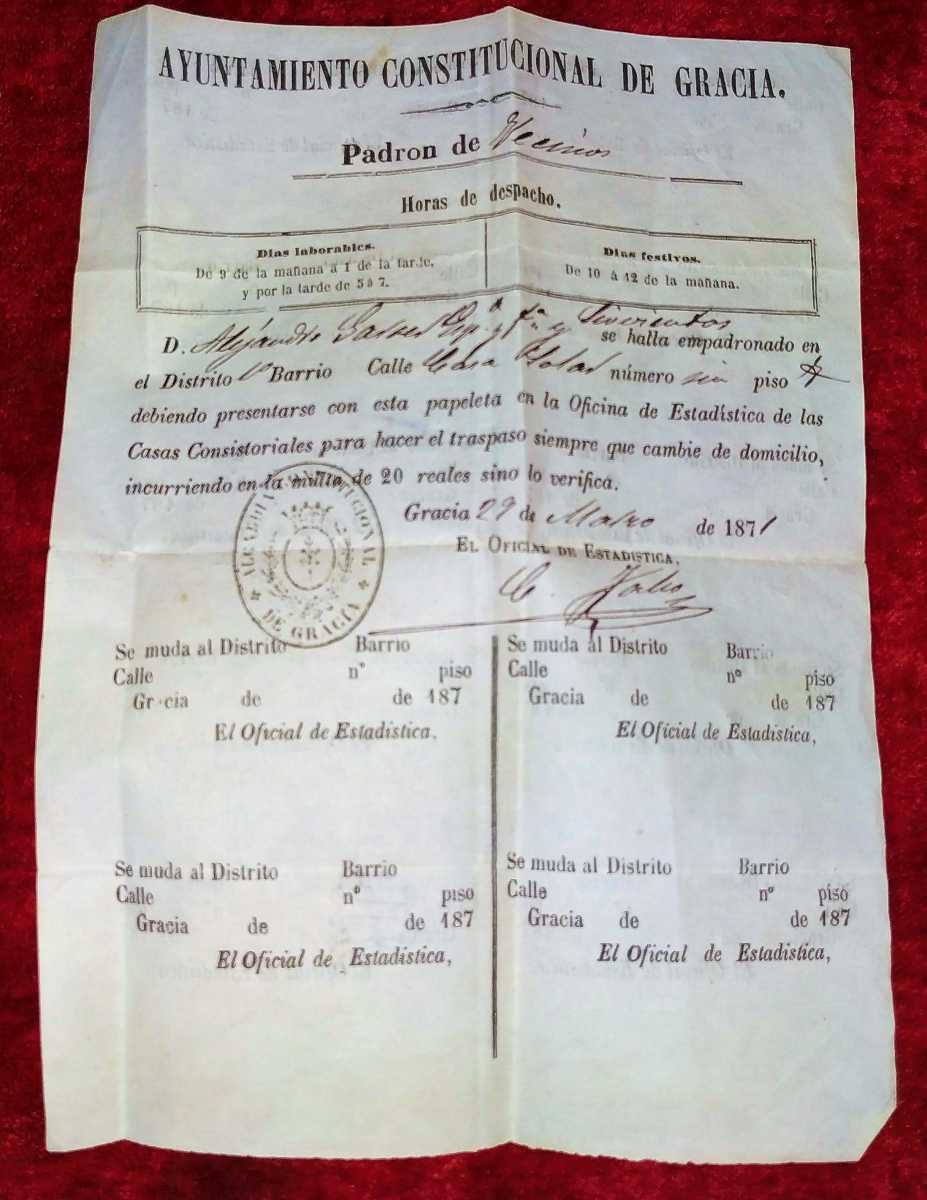 AYUNTAMIENTO CONSTITUCIONAL DE GRACIA.
Padron de Vecinos
Horas de despacho.
Dias laborables.
De 9 de la mañana á 1 de la tarde,
y por la tarde de 5 á 7.
Dias festivos.
De 10 á 12 de la mañana.
D. Alejandro Espª y fª y Sirvientes
se halla empadronado en
el Distrito 1º Barrio Calle Casa número sin piso
debiendo presentarse con esta papeleta en la Oficina de Estadística de las
Casas Consistoriales para hacer el traspaso siempre que cambie de domicilio,
incurriendo en la multa de 20 reales sino lo verifica.
Gracia 29 de Marzo de 1871
EL OFICIAL DE ESTADISTICA,
ALCALDIA CONSTITUCIONAL DE GRACIA
Se muda al Distrito Barrio
Calle nº piso
Gracia de de 187
El Oficial de Estadística,
Se muda al Distrito Barrio
Calle nº piso
Gracia de de 187
El Oficial de Estadística,
Se muda al Distrito Barrio
Calle nº piso
Gracia de de 187
El Oficial de Estadística,
Se muda al Distrito Barrio
Calle nº piso
Gracia de de 187
El Oficial de Estadística,